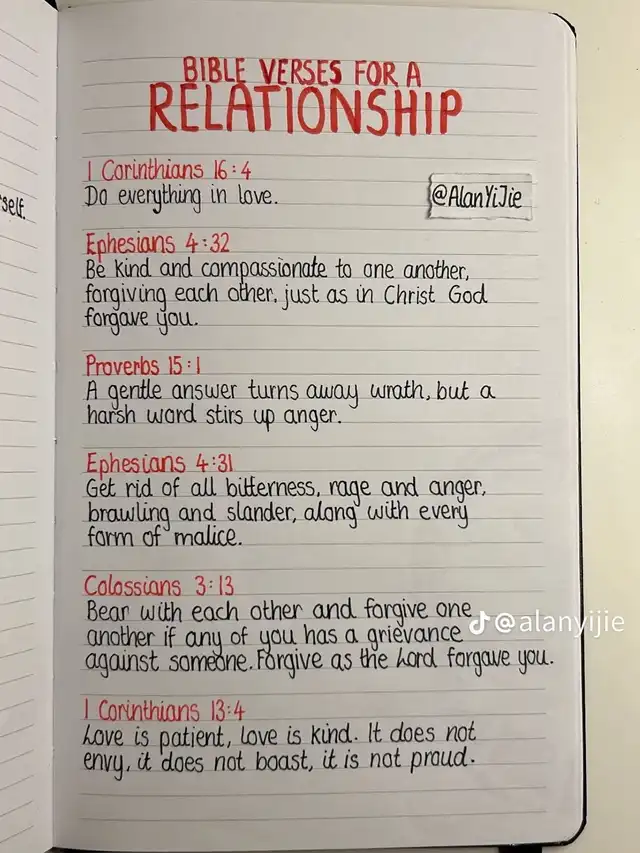 BIBLE VERSES FOR A
RELATIONSHIP
self.
1 Corinthians 16:4
Do everything in love.
@AlanYiJie
Ephesians 4:32
Be kind and compassionate to one another,
forgiving each other, just as in Christ God
forgave you.
Proverbs 15:1
A gentle answer turns away wrath, but a
harsh word stirs up anger.
Ephesians 4:31
Get rid of all bitterness, rage and anger,
brawling and slander, along with every
form of malice.
Colossians 3:13
Bear with each other and forgive one
another if any of you has a grievance
against someone. Forgive as the Lord forgave you.
@alanyijie
1 Corinthians 13:4
Love is patient, love is kind. It does not
envy, it does not boast, it is not proud.